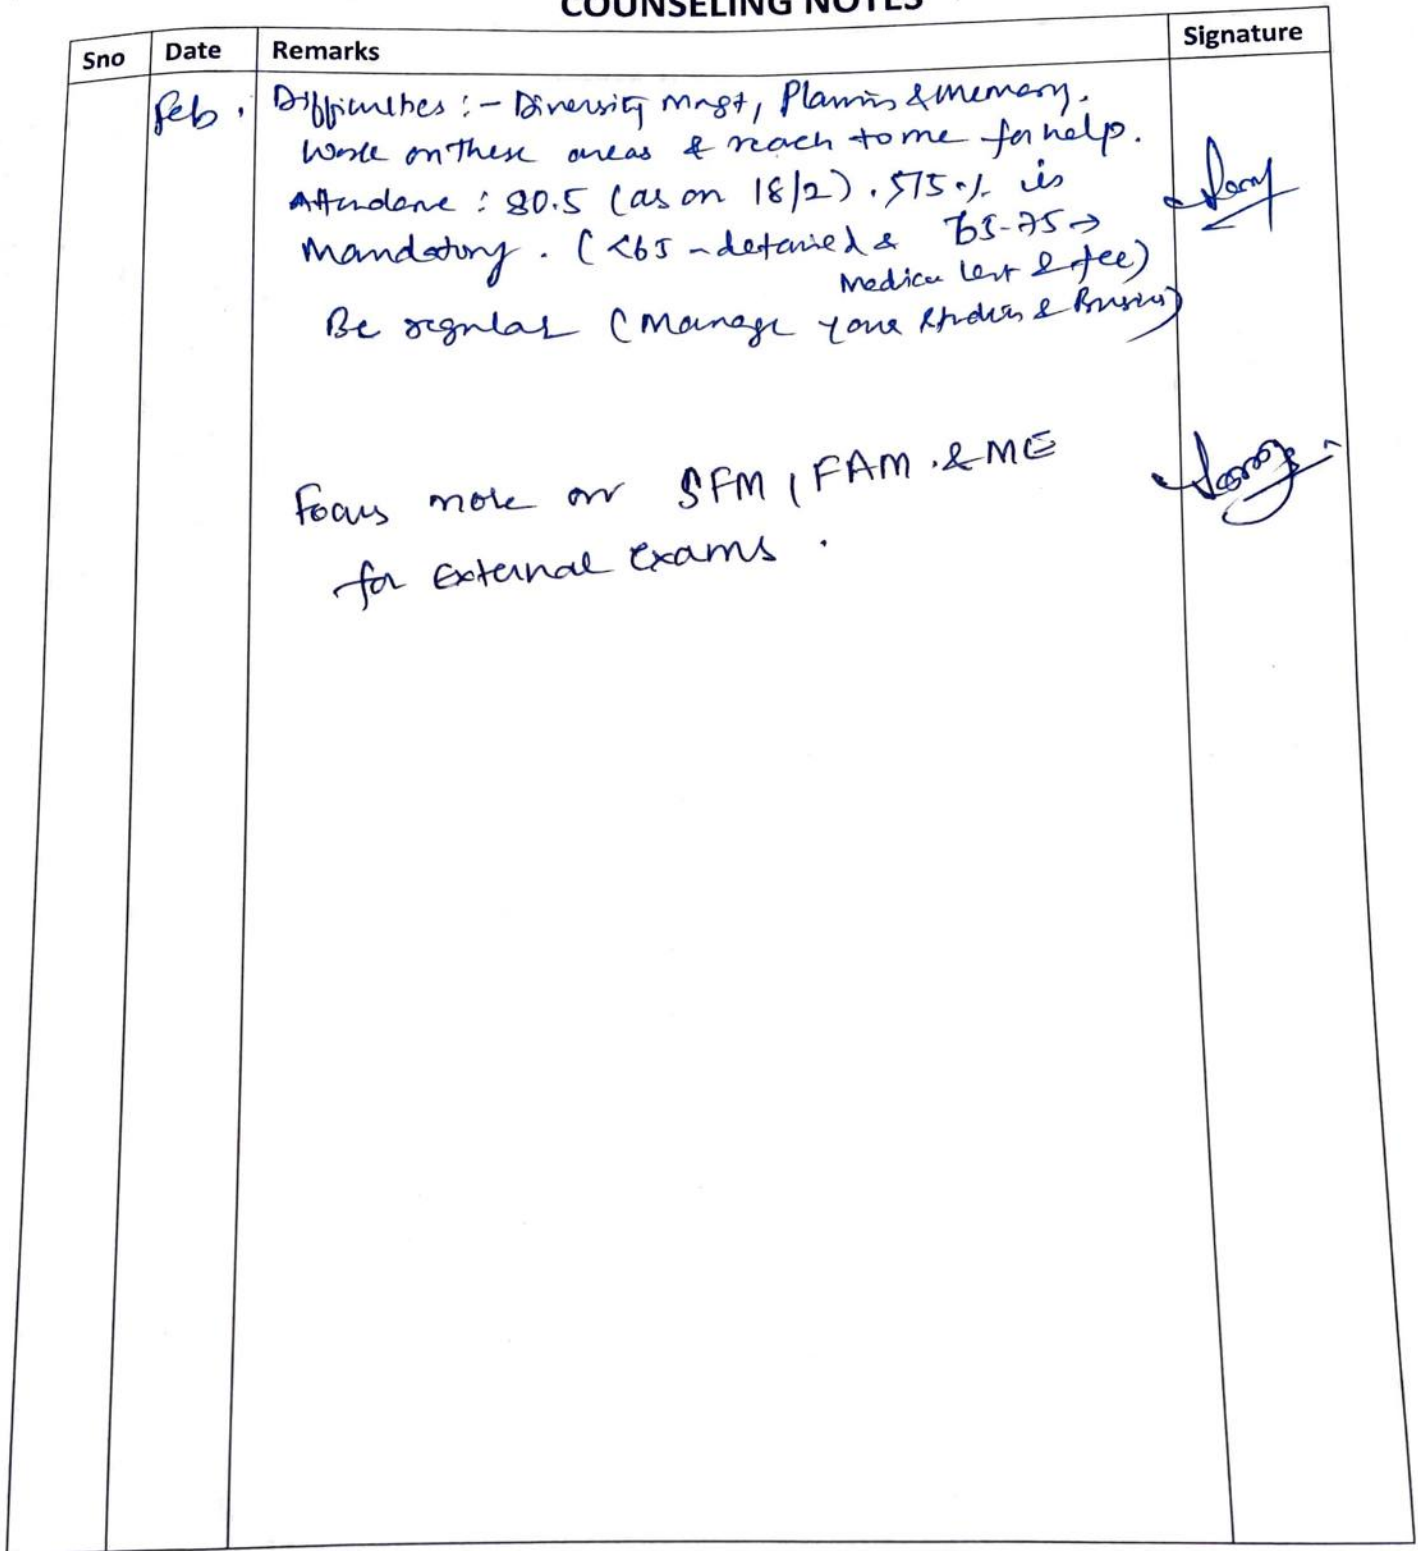 COUNSELING NOTES
Sno Date Remarks Signature
Feb. Difficulties :- Diversity Mngt, Planning & memory.
Work on these areas & reach to me for help.
Attendance : 80.5 (as on 18/2). >75% is
Mandatory. (<65 - detained & 65-75 →
Medical & fee)
Be regular (Manage your studies & Business)
Focus more on SFM, FAM. & ME
for External exams.